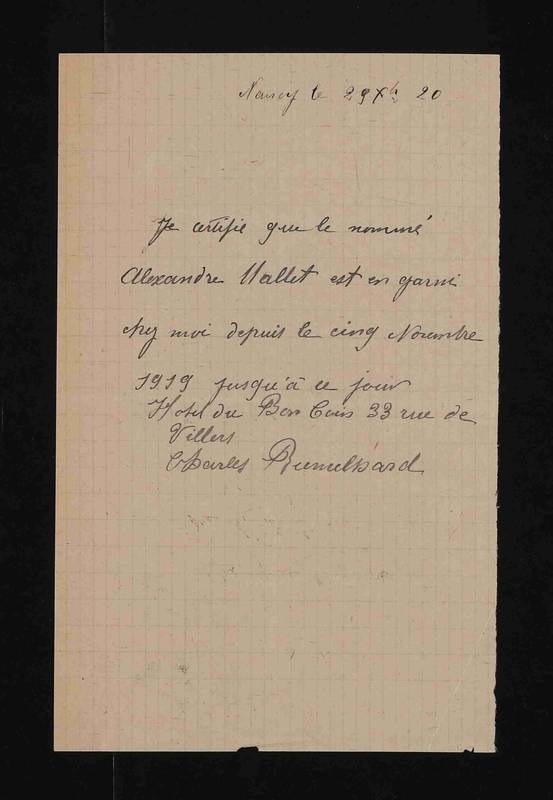 Nancy le 29 Xbre 20
Je certifie que le nommé
Alexandre Mallet est en garni
chez moi depuis le cinq Novembre
1919 jusqu'à ce jour
Hotel du Bon Coin 33 rue de
Villers
Charles